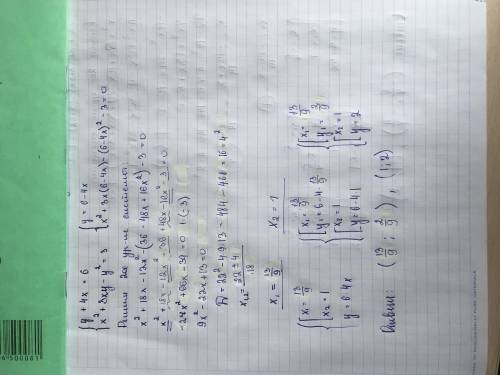 { y + 4x = 6
x² + 3xy - y² = 3
{ y = 6-4x
x² + 3x(6-4x) - (6-4x)² - 3 = 0
Решим 2ое ур-ие системы:
x² + 18x - 12x² - (36 - 48x + 16x²) - 3 = 0
x² + 18x - 12x² - 36 + 48x - 16x² - 3 = 0
9x² - 22x + 13 = 0
D = 22² - 4·9·13 = 484 - 468 = 16 = 4²
x₁,₂ = (22 ± 4)/18
x₁ = 13/9    x₂ = 1
{ [ x₁ = 13/9
x₂ = 1
y = 6-4x
[ { x₁ = 13/9
y₁ = 6-4·13/9
{ x₂ = 1
y = 6-4·1
[ { x₁ = 13/9
y₁ = 2/9
{ x₂ = 1
y = 2
Ответ: (13/9 ; 2/9), (1; 2)